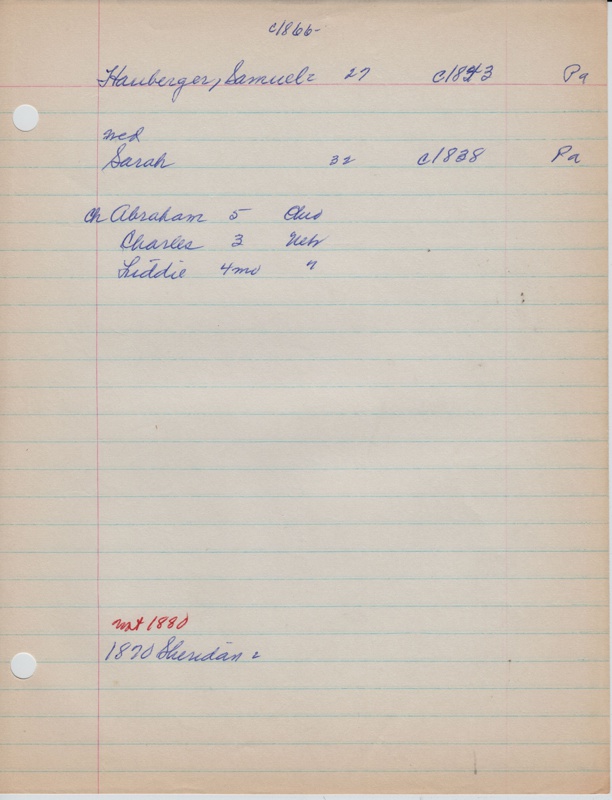 c/866-
Hauberger, Samuel- 27 c/843 Pa
md
Sarah 32 c/838 Pa
ch Abraham 5 Ohio
Charles 3 Neb
Liddie 4mo "
not 1880
1870 Sheridan 2